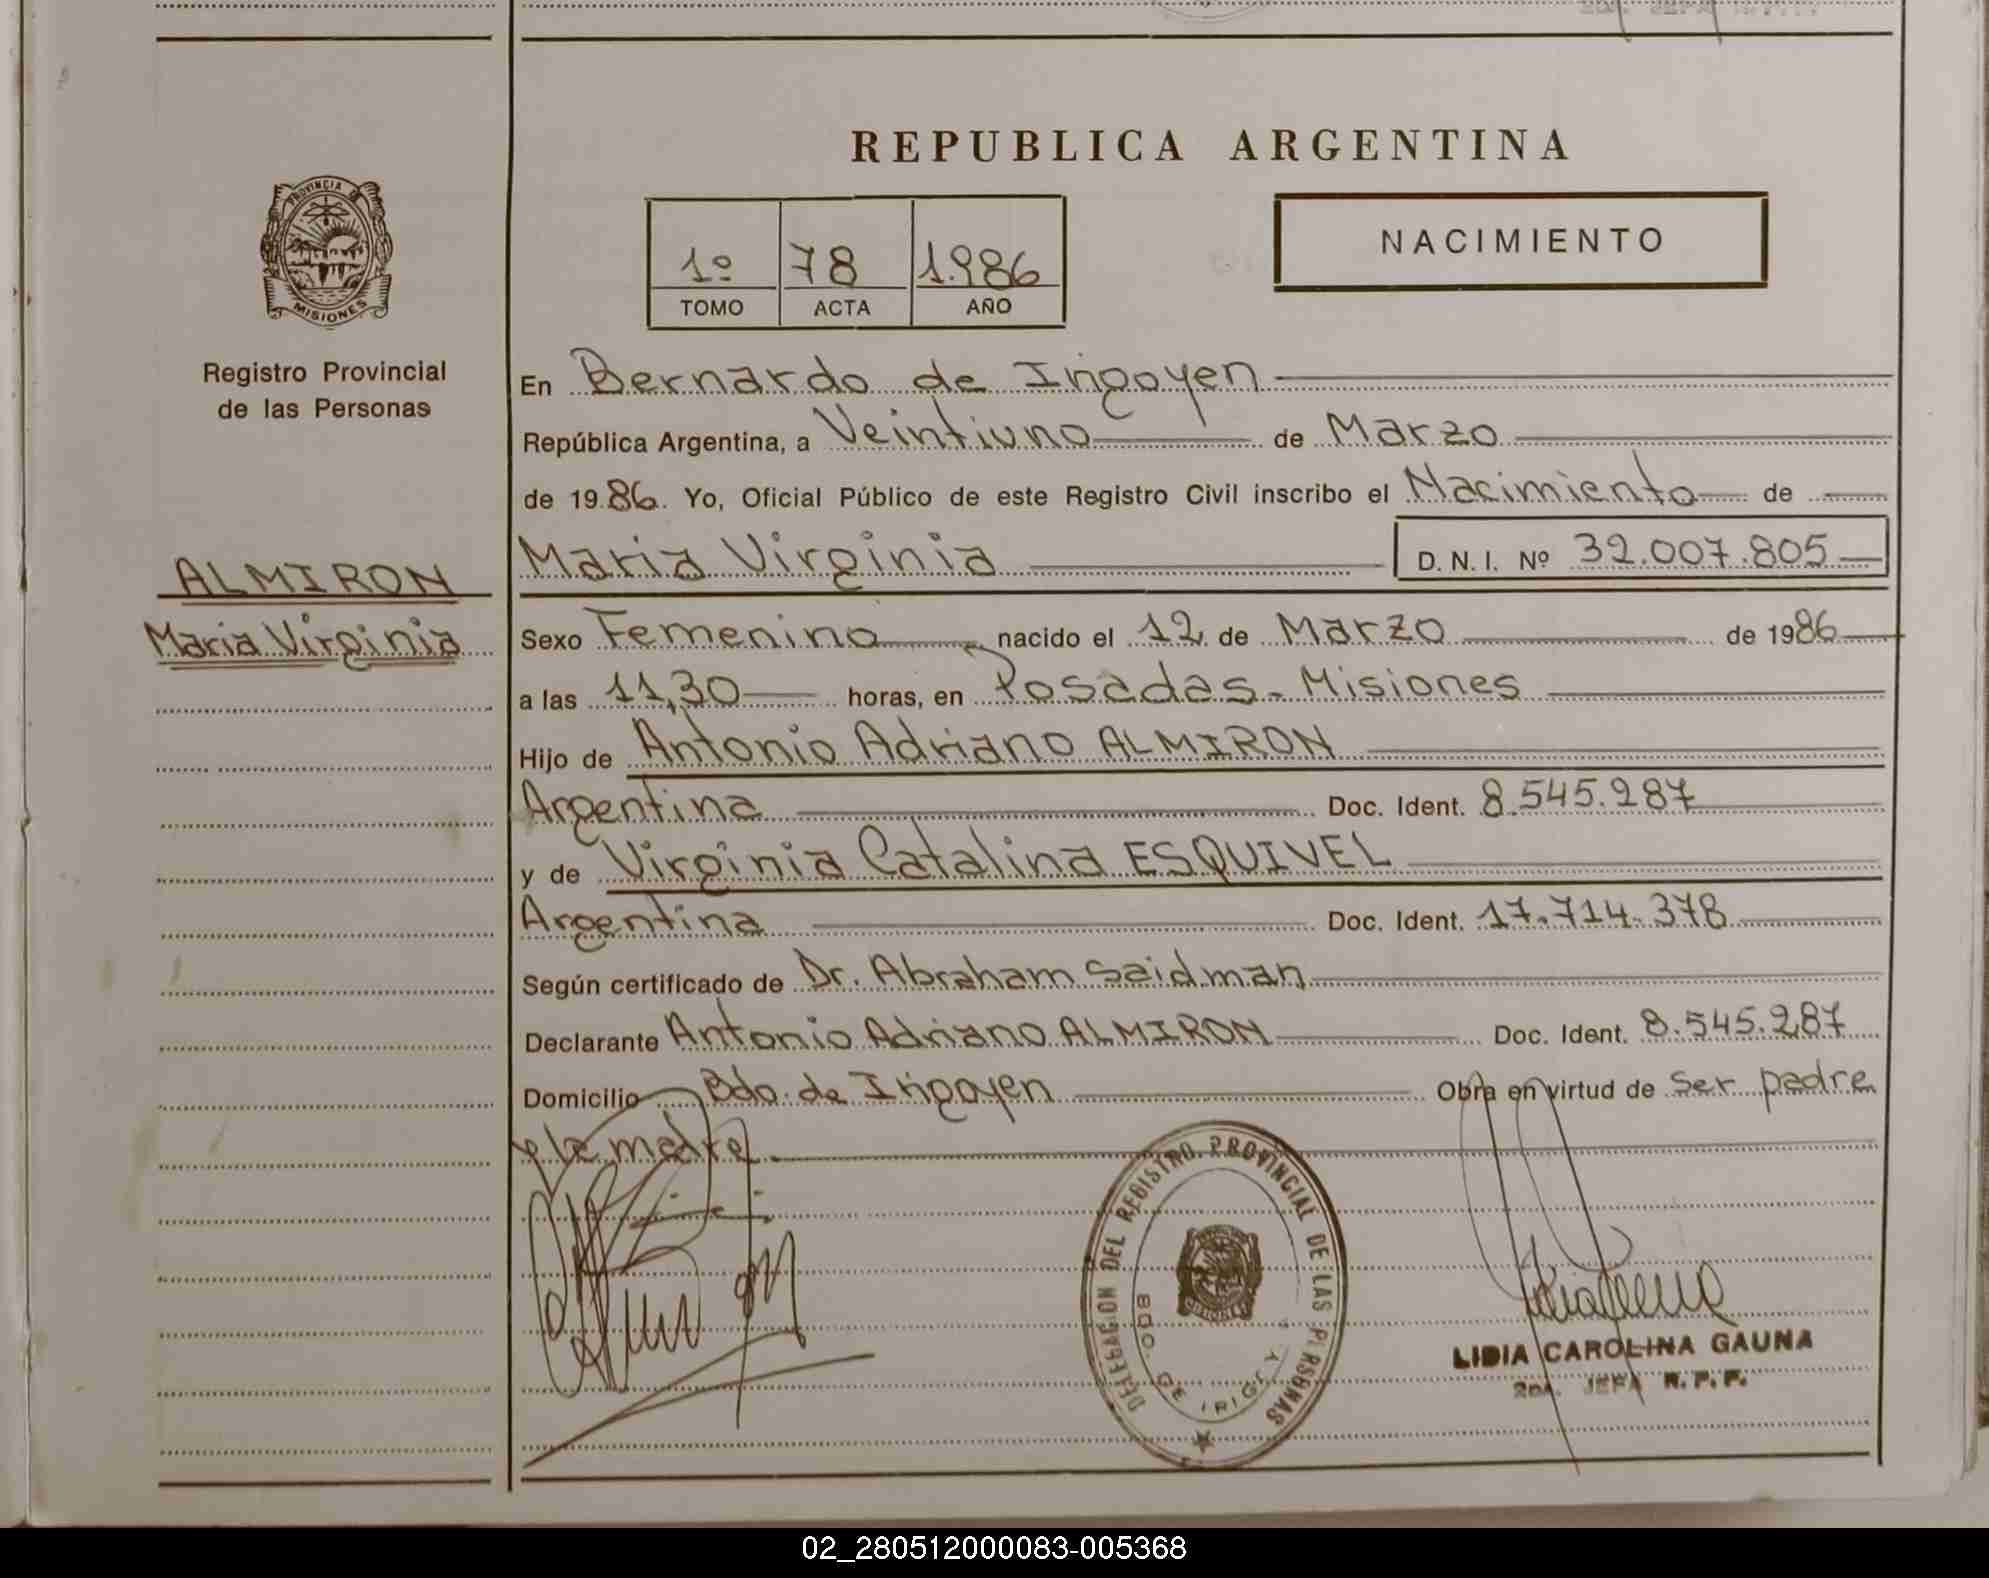 REPUBLICA ARGENTINA
PROVINCIA DE
MISIONES
Registro Provincial
de las Personas
NACIMIENTO
1º 78 1.986
TOMO ACTA AÑO
En Bernardo de Irigoyen
República Argentina, a Veintiuno de Marzo
de 1986. Yo, Oficial Público de este Registro Civil inscribo el Nacimiento de
ALMIRON
Maria Virginia
Maria Virginia D. N. I. Nº 32.007.805
Sexo Femenino nacido el 12 de Marzo de 1986
a las 11,30 horas, en Posadas - Misiones
Hijo de Antonio Adriano ALMIRON
Argentina Doc. Ident. 8.545.287
y de Virginia Catalina ESQUIVEL
Argentina Doc. Ident. 17.714.378
Según certificado de Dr. Abraham Saidman
Declarante Antonio Adriano ALMIRON Doc. Ident. 8.545.287
Domicilio Bdo. de Irigoyen Obra en virtud de ser padre
y la madre.
DELEGACION DEL REGISTRO PROVINCIAL DE LAS PERSONAS
BDO. DE IRIGOY.
LIDIA CAROLINA GAUNA
2da. JEFA R. P. P.
02_280512000083-005368